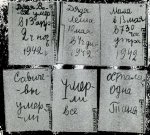 Дядя
Вася умер
в 13 апр
2 ч ноч
1942 г
Дядя
Леша
10 мая
в 4 ч дня
1942 г
Мама
в 13 мая
в 7.30
час
утра
1942 г
Савиче
вы
умер
ли
умер
ли
все
Осталась
одна
Таня